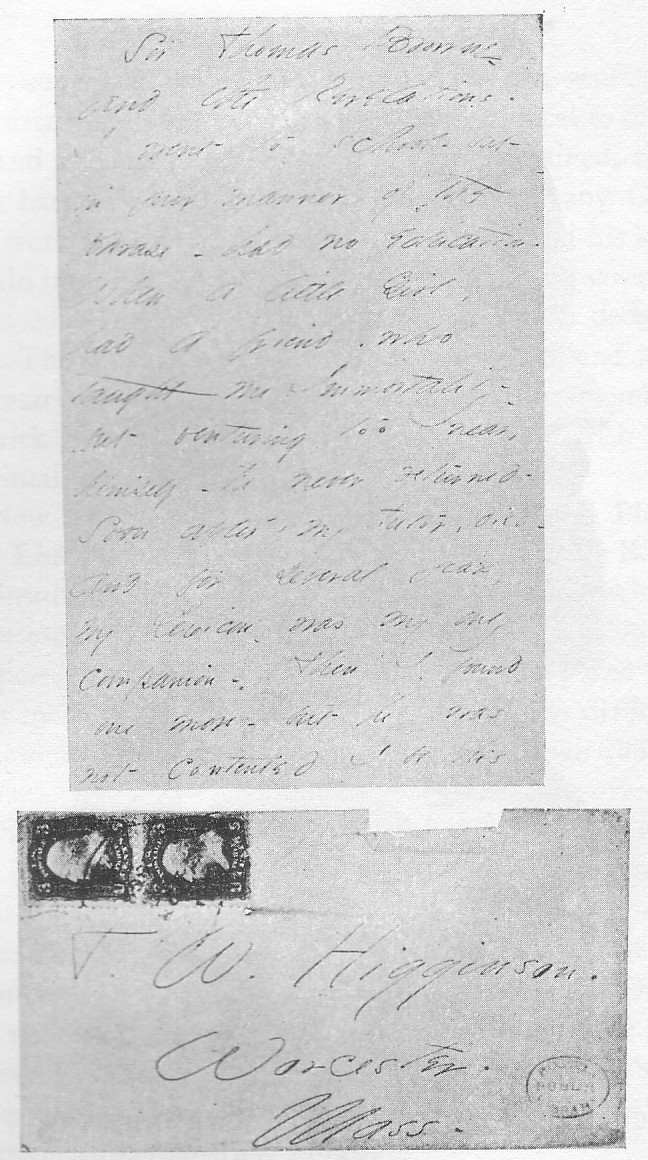 Sir Thomas Browne
and the Revelations.
I went to school - but
in your manner of the
phrase - had no education.
When a little Girl,
had a friend, who
taught me Immortality -
but venturing too near,
himself - he never returned -
Soon after, my Tutor, died -
and for several years,
my Lexicon, was my only
companion - Then I found
one more - but he was
not contented I be his
T. W. Higginson.
Worcester.
Mass.